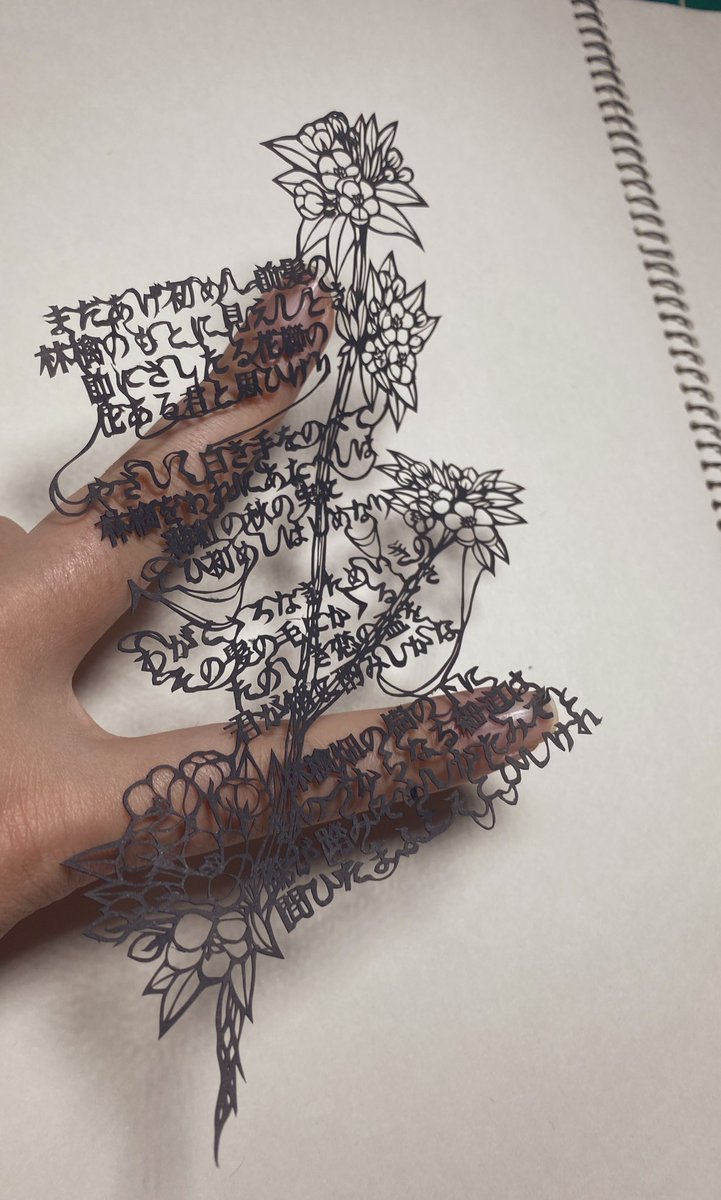 まだあげ初めし前髪の
林檎のもとに見えしとき
前にさしたる花櫛の
花ある君と思ひけり
やさしく白き手をのべて
林檎をわれにあたへしは
薄紅の秋の実に
人こひ初めしはじめなり
わがこゝろなきためいきの
その髪の毛にかゝるとき
たのしき恋の盃を
君が情に酌みしかな
林檎畑の樹の下に
おのづからなる細道は
誰が踏みそめしかたみぞと
問ひたまふこそこひしけれ